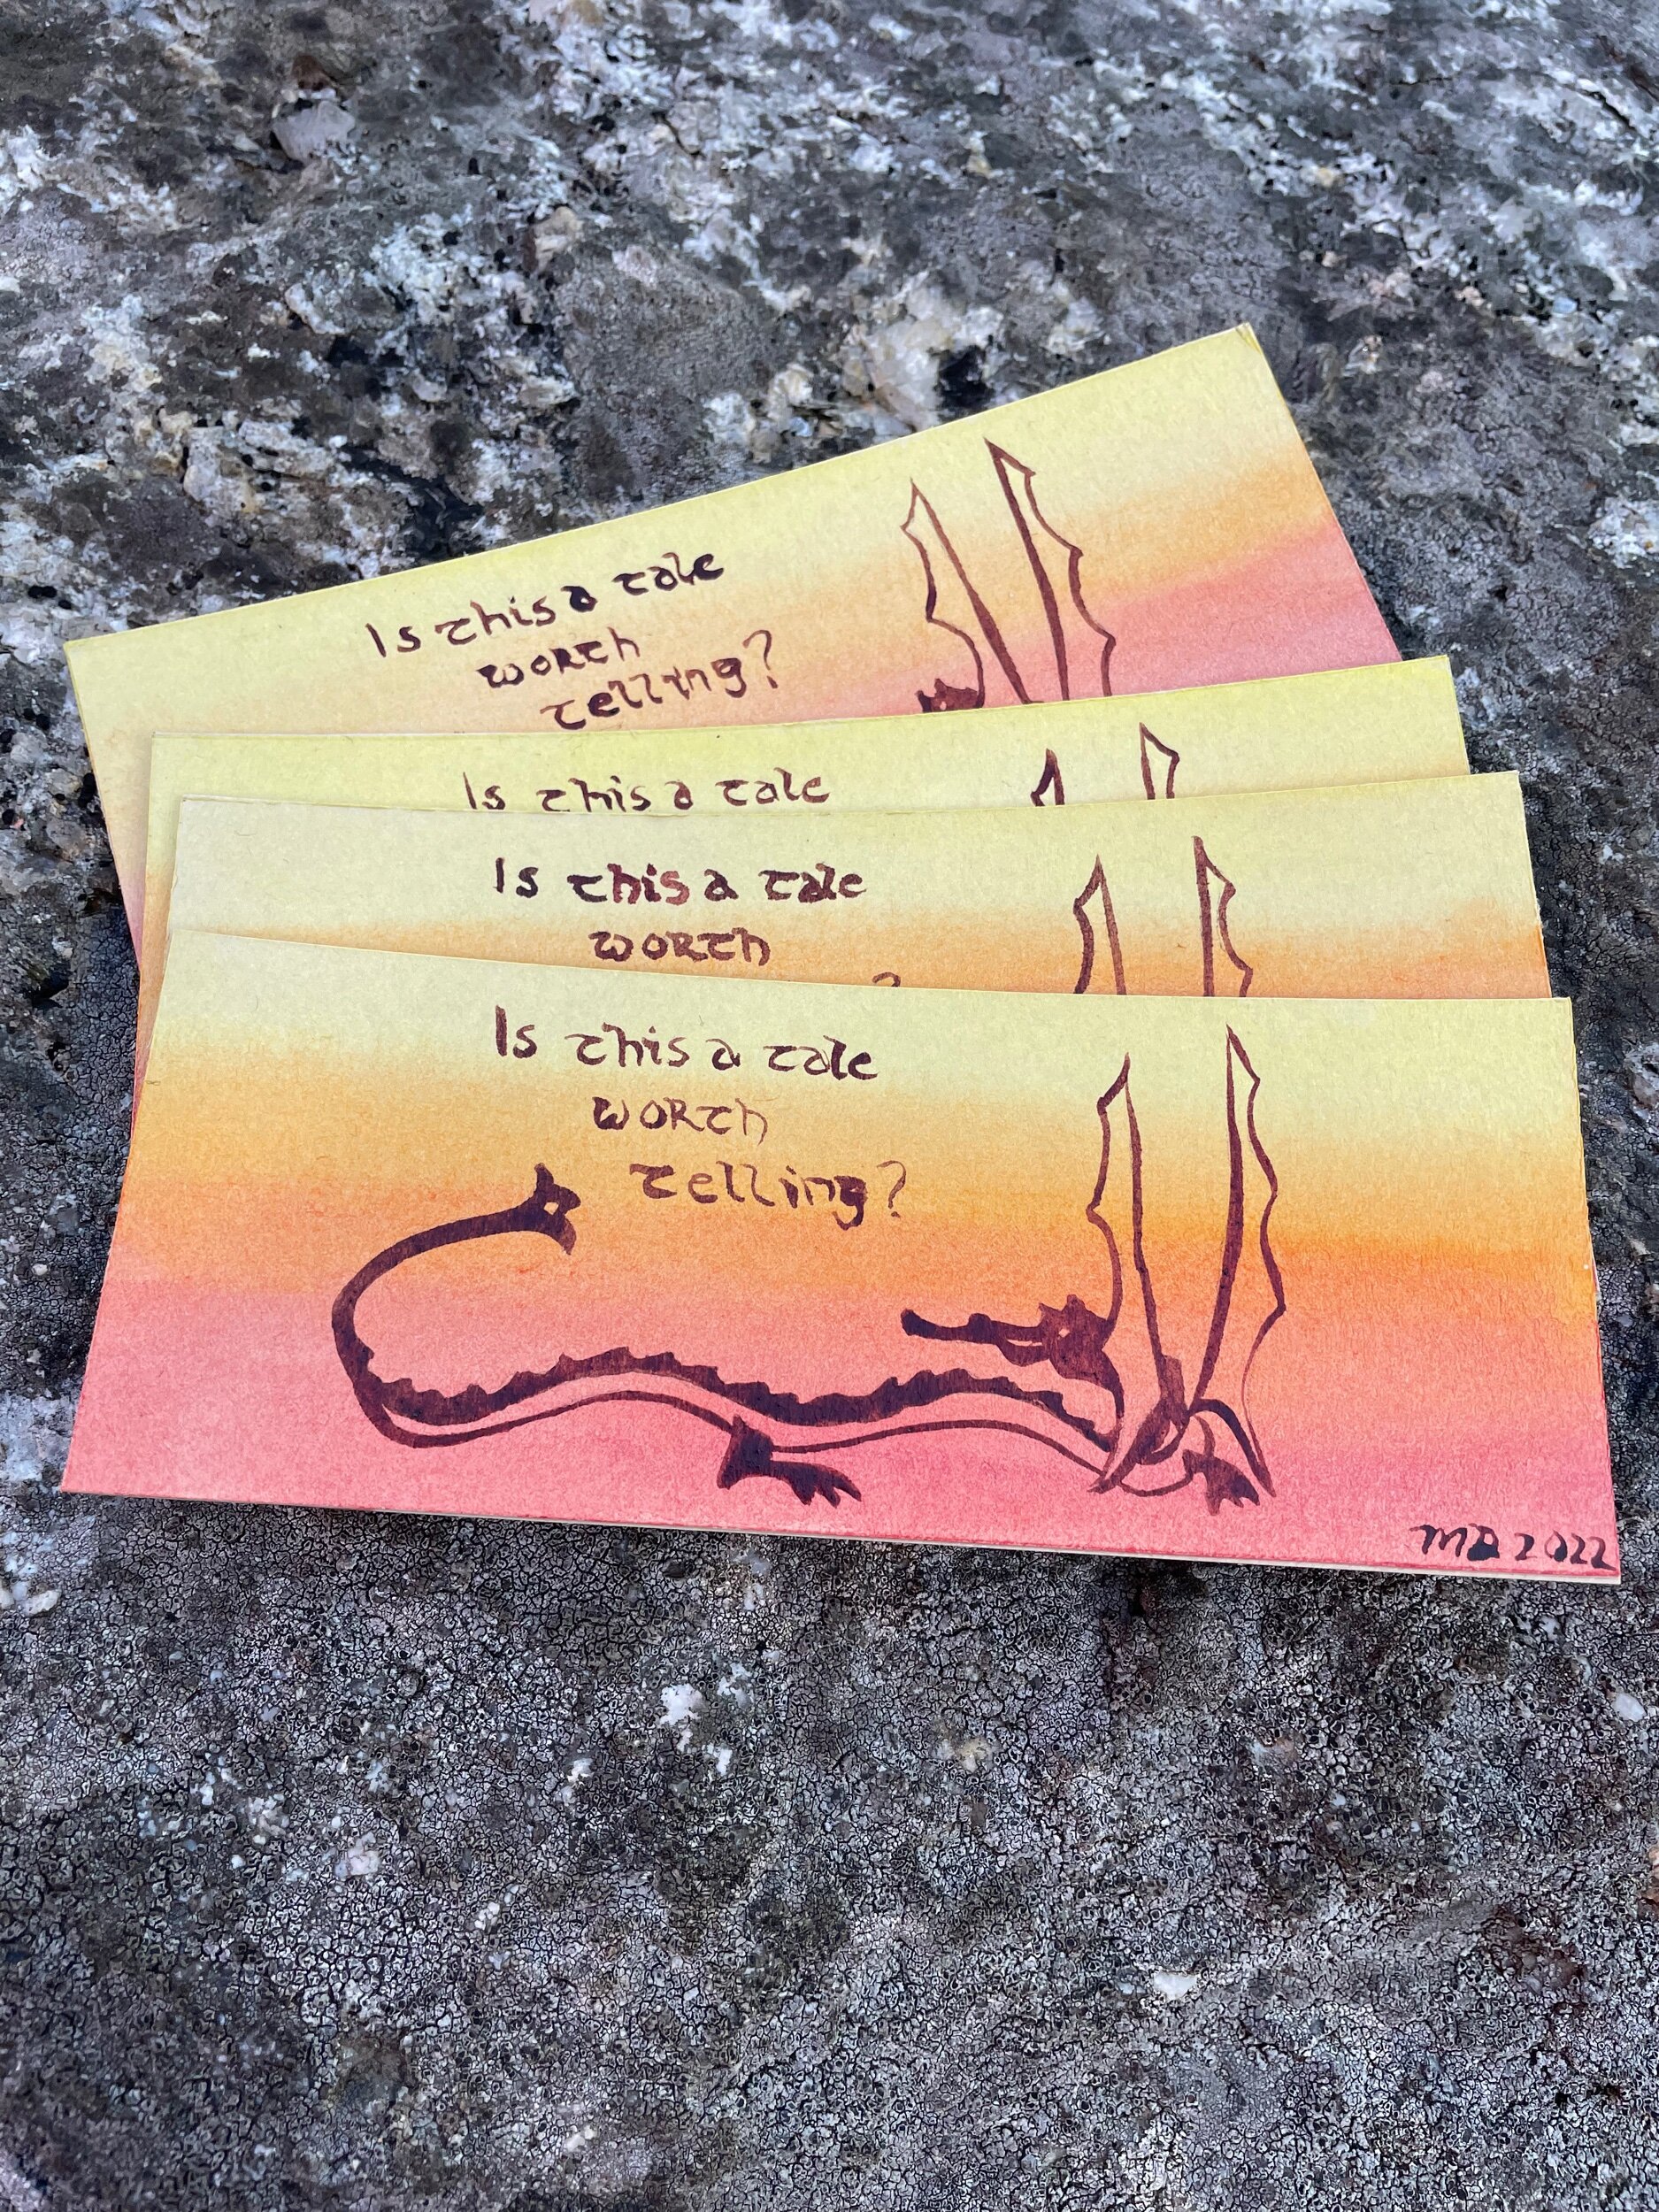 Is this a tale
worth
telling?
Is this a tale
Is this a tale
worth
Is this a tale
worth
telling?
MD 2022